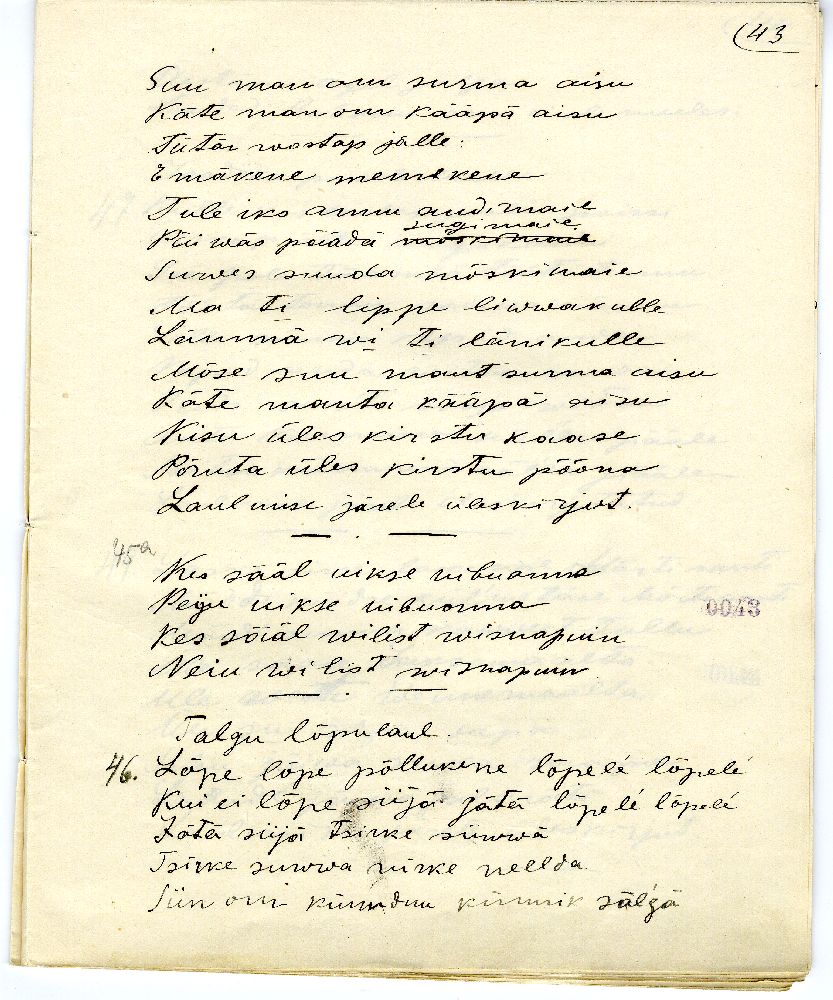 (43
Suu man om surma aisu
Käte man om kääpä aisu
Tütär wastap jälle:
Emäkene memekene
Tule iks armu andimaie
Päi wäo pääda sugimaie
Surves suuda mõskimaie
Ma ti lippe liwwakulle
Lämmä wi ti länikulle
Mõse suu mant surma aisu
Käte manta kääpä aisu
Kisu üles kirstu kaase
Põruta üles kirstu põõna
Laulmise järele üleskirjut.
45a
Kes sääl uikse uibuanna
Peiu uikse uibuonna
Kes sääl wilist wisnapuun
Neiu wilist wisnapuun
0043
Talgu lõpulaul.
46. Lõpe lõpe põllukene lõpelé lõpelé
Kui ei lõpe siijä jätä lõpelé lõpelé
Jätä siijä tsirke süwwä
Tsirke süwwa nirke neelda
Siin om küündüu künnik sälgä